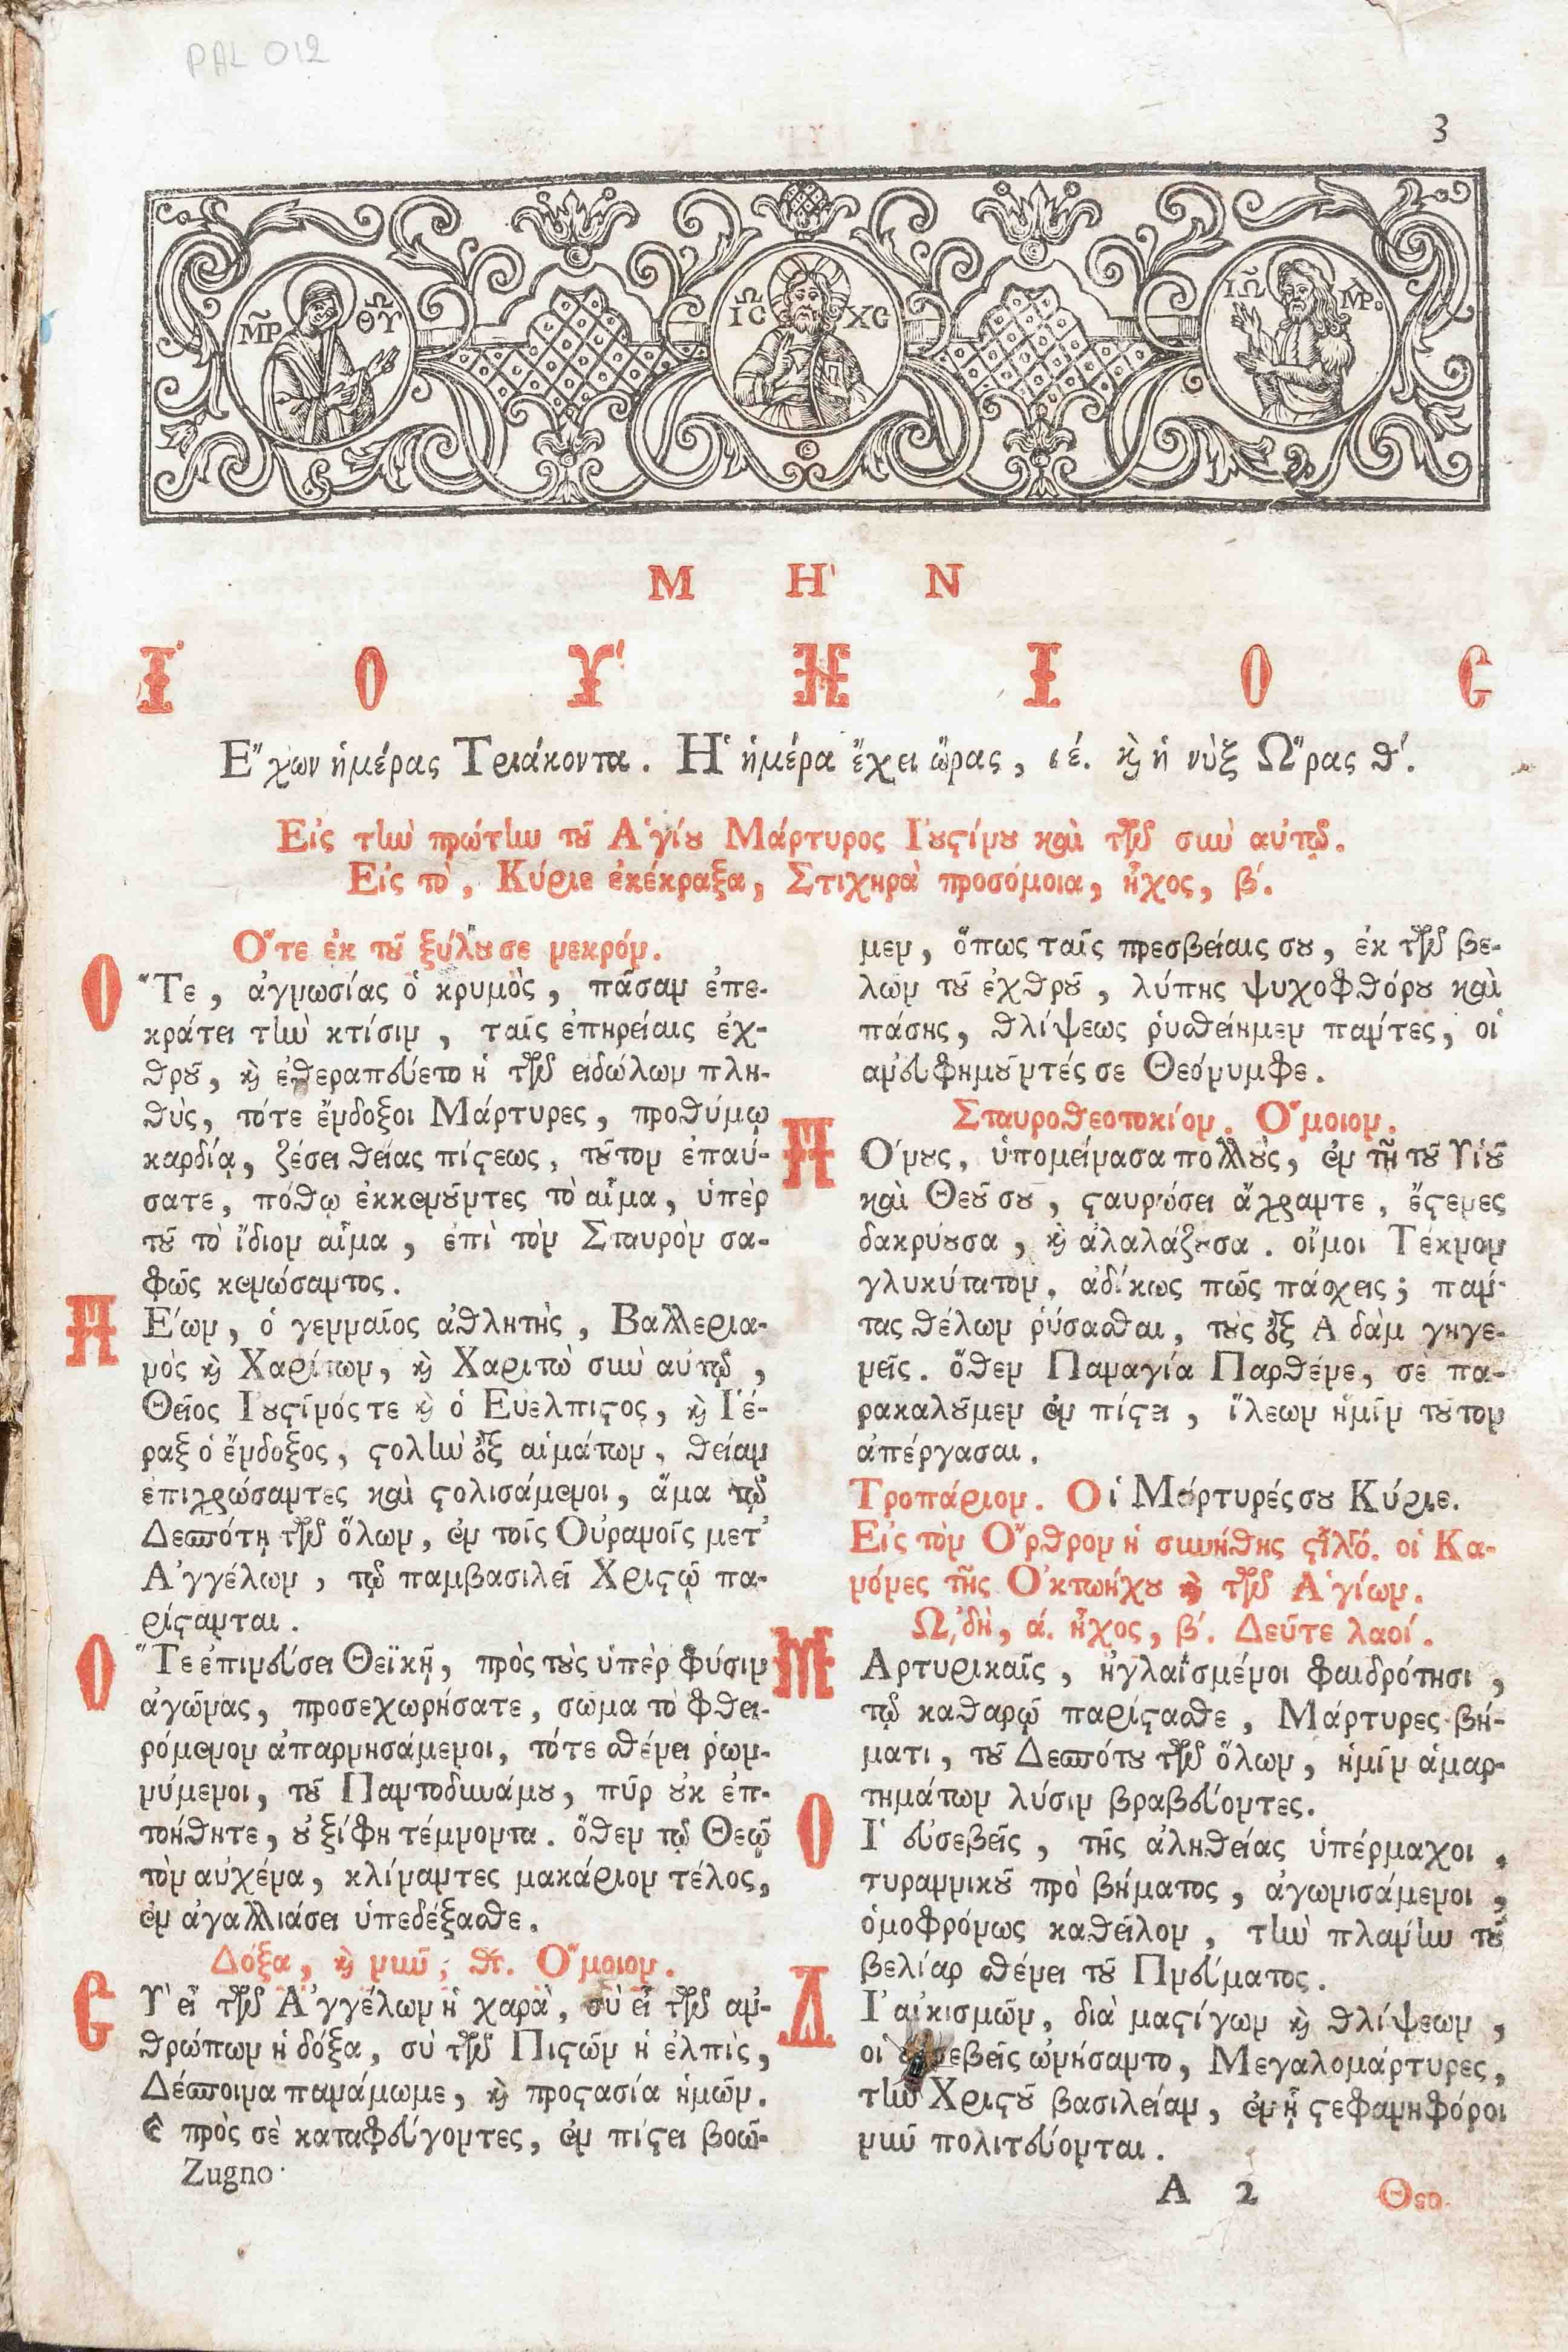 PAL 012
3
ΜΡ ΘΥ
Ω ΙC ΧC
ΙΩ
Μ Η Ν
Ι Ο Υ Ν Ι Ο C
Ἔχων ἡμέρας Τριάκοντα. Ἡ ἡμέρα ἔχει ὥρας, ιέ. καὶ ἡ νὺξ Ὥρας θ΄.
Εἰς τὴν πρώτην τοῦ Ἁγίου Μάρτυρος Ἰουστίνου καὶ τῶν σὺν αὐτῷ.
Εἰς τὸ, Κύριε ἐκέκραξα, Στιχηρὰ προσόμοια, ἦχος, β΄.
Ὅτε ἐκ τοῦ ξύλου σε νεκρόν.
Ὅ Τε, ἀγνωσίας ὁ κρυμὸς, πᾶσαν ἐπε-
κράτει τὴν κτίσιν, ταῖς ἐπηρείαις ἐχ-
θροῦ, καὶ ἐθεραπεύετο ἡ τῶν εἰδώλων πλη-
θὺς, τότε ἔνδοξοι Μάρτυρες, προθύμῳ
καρδίᾳ, ζέσει θείας πίστεως, τοῦτον ἐπαύ-
σατε, πόθῳ ἐκκενοῦντες τὸ αἷμα, ὑπὲρ
τοῦ τὸ ἴδιον αἷμα, ἐπὶ τὸν Σταυρὸν σα-
φῶς κενώσαντος.
Ν Εων, ὁ γενναῖος ἀθλητὴς, Βαλλερια-
νὸς καὶ Χαρίτων, καὶ Χαριτὼ σὺν αὐτῷ,
Θεῖος Ἰουστῖνός τε καὶ ὁ Εὐέλπιστος, καὶ Ἱέ-
ραξ ὁ ἔνδοξος, στολὴν ἐξ αἱμάτων, θείαν
ἐπιχρώσαντες καὶ στολισάμενοι, ἅμα τῷ
Δεσπότῃ τῶν ὅλων, ἐν τοῖς Οὐρανοῖς μετ'
Ἀγγέλων, τῷ παμβασιλεῖ Χριστῷ πα-
ρίστανται.
Ὅ Τε ἐπινεύσει Θεϊκῇ, πρὸς τοὺς ὑπὲρ φύσιν
ἀγῶνας, προσεχωρήσατε, σῶμα τὸ φθει-
ρόμενον ἀπαρνησάμενοι, τότε σθένει ῥων-
νύμενοι, τοῦ Παντοδυνάμου, πῦρ οὐκ ἐπ-
τοήθητε, οὐ ξίφη τέμνοντα. ὅθεν τῷ Θεῷ
τὸν αὐχένα, κλίναντες μακάριον τέλος,
ἐν ἀγαλλιάσει ὑπεδέξασθε.
Δόξα, καὶ νῦν, Θτ. Ὅμοιον.
C Ὺ εἶ τῶν Ἀγγέλων ἡ χαρὰ, σὺ εἶ τῶν ἀν-
θρώπων ἡ δόξα, σὺ τῶν Πιστῶν ἡ ἐλπὶς,
Δέσποινα πανάμωμε, καὶ προστασία ἡμῶν.
C πρὸς σὲ καταφεύγοντες, ἐν πίστει βοῶ-
Zugno
μεν, ὅπως ταῖς πρεσβείαις σου, ἐκ τῶν βε-
λῶν τοῦ ἐχθροῦ, λύπης ψυχοφθόρου καὶ
πάσης, θλίψεως ῥυσθείημεν πάντες, οἱ
ἀνευφημοῦντές σε Θεόνυμφε.
Σταυροθεοτοκίον. Ὅμοιον.
Π Όνους, ὑπομείνασα πολλοὺς, ἐν τῇ τοῦ Υἱοῦ
καὶ Θεοῦ σου, σταυρώσει ἄχραντε, ἔστενες
δακρύουσα, καὶ ἀλαλάζουσα. οἴμοι Τέκνον
γλυκύτατον, ἀδίκως πῶς πάσχεις; πάν-
τας θέλων ῥύσασθαι, τοὺς ἐξ Ἀδὰμ γηγε-
νεῖς. ὅθεν Παναγία Παρθένε, σὲ πα-
ρακαλοῦμεν ἐν πίστει, ἵλεων ἡμῖν τοῦτον
ἀπέργασαι.
Τροπάριον. Οἱ Μάρτυρές σου Κύριε.
Εἰς τὸν Ὄρθρον ἡ συνήθης στιχλό. οἱ Κα-
νόνες τῆς Ὀκτωήχου καὶ τῶν Ἁγίων.
ᾨδὴ, ά. ἦχος, β΄. Δεῦτε λαοί.
Μ Αρτυρικαῖς, ἠγλαϊσμένοι φαιδρότησι,
τῷ καθαρῷ παρίστασθε, Μάρτυρες βή-
ματι, τοῦ Δεσπότου τῶν ὅλων, ἡμῖν ἁμαρ-
τημάτων λύσιν βραβεύοντες.
Ο Ἱ εὐσεβεῖς, τῆς ἀληθείας ὑπέρμαχοι,
τυραννικοῦ πρὸ βήματος, ἀγωνισάμενοι,
ὁμοφρόνως καθεῖλον, τὴν πλάνην τοῦ
βελίαρ σθένει τοῦ Πνεύματος.
Δ Ι' αἰκισμῶν, διὰ μαστίγων καὶ θλίψεων,
οἱ εὐσεβεῖς ὠνήσαντο, Μεγαλομάρτυρες,
τὴν Χριστοῦ βασιλείαν, ἐν ᾗ στεφανηφόροι
νῦν πολιτεύονται.
A 2 Θεο.